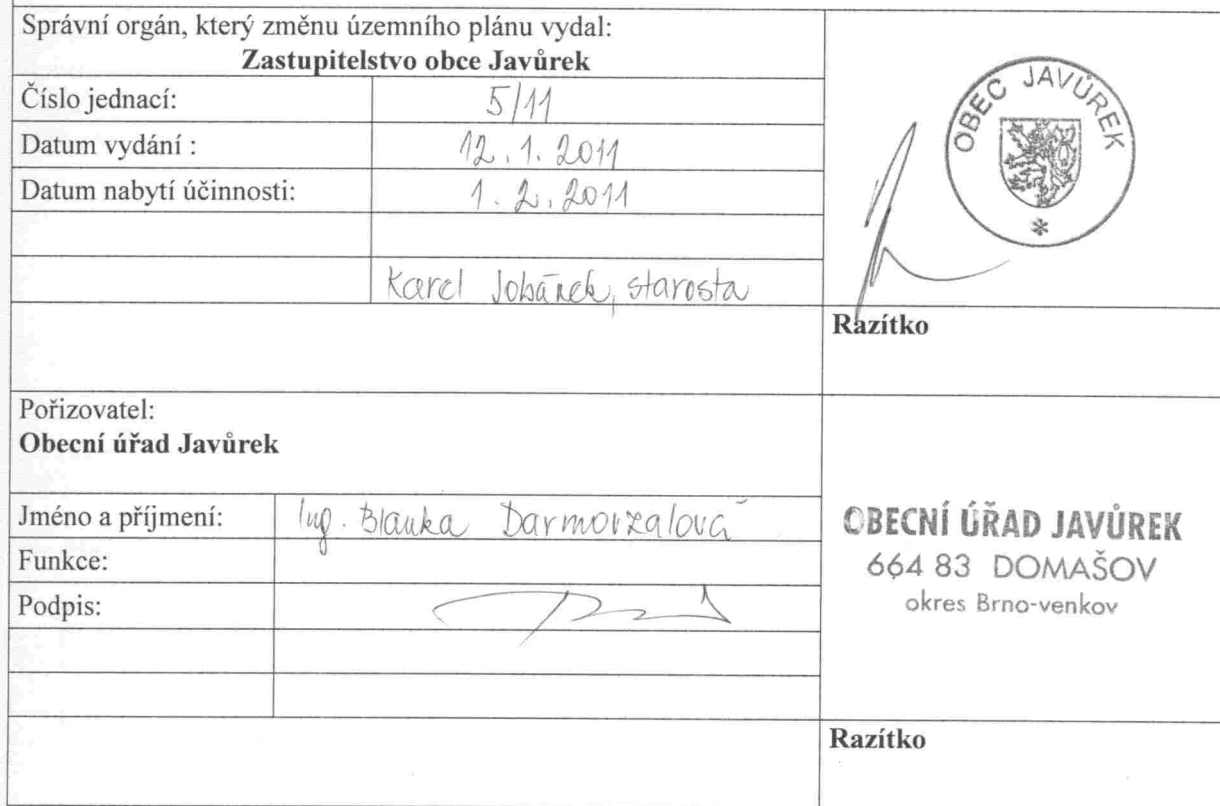 Správní orgán, který změnu územního plánu vydal:
Zastupitelstvo obce Javůrek
Číslo jednací: 5/11
Datum vydání : 12.1.2011
Datum nabytí účinnosti: 1.2.2011
Karel starosta
OBEC JAVŮREK
*
Razítko
Pořizovatel:
Obecní úřad Javůrek
Jméno a příjmení: Ing. Blanka Darmovzalová
Funkce:
Podpis:
OBECNÍ ÚŘAD JAVŮREK
664 83 DOMAŠOV
okres Brno-venkov
Razítko